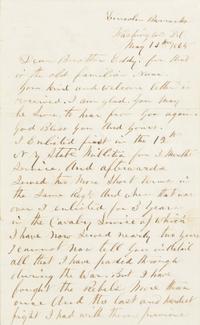 Lincoln Barracks
Washington D.C.
May 15th 1865
Dear Brother Eddy, for that
is the old familiar Name.
Your kind and welcome letter is
received. I am glad you may
be sure, to hear from you again
God Bless You And Yours.
I Enlisted first in the 12th
N.Y. State Militia for 3 Months
service, And afterwards
served two more Short times in
the Same Regt. And when that was
over I enlisted for 3 years
in the Cavalry Service of which
I have now served nearly two years
I cannot now tell you in detail
all that I have passed through
during the War. But I have
fought the Rebels More than
once And the last and hardest
fight I had with them